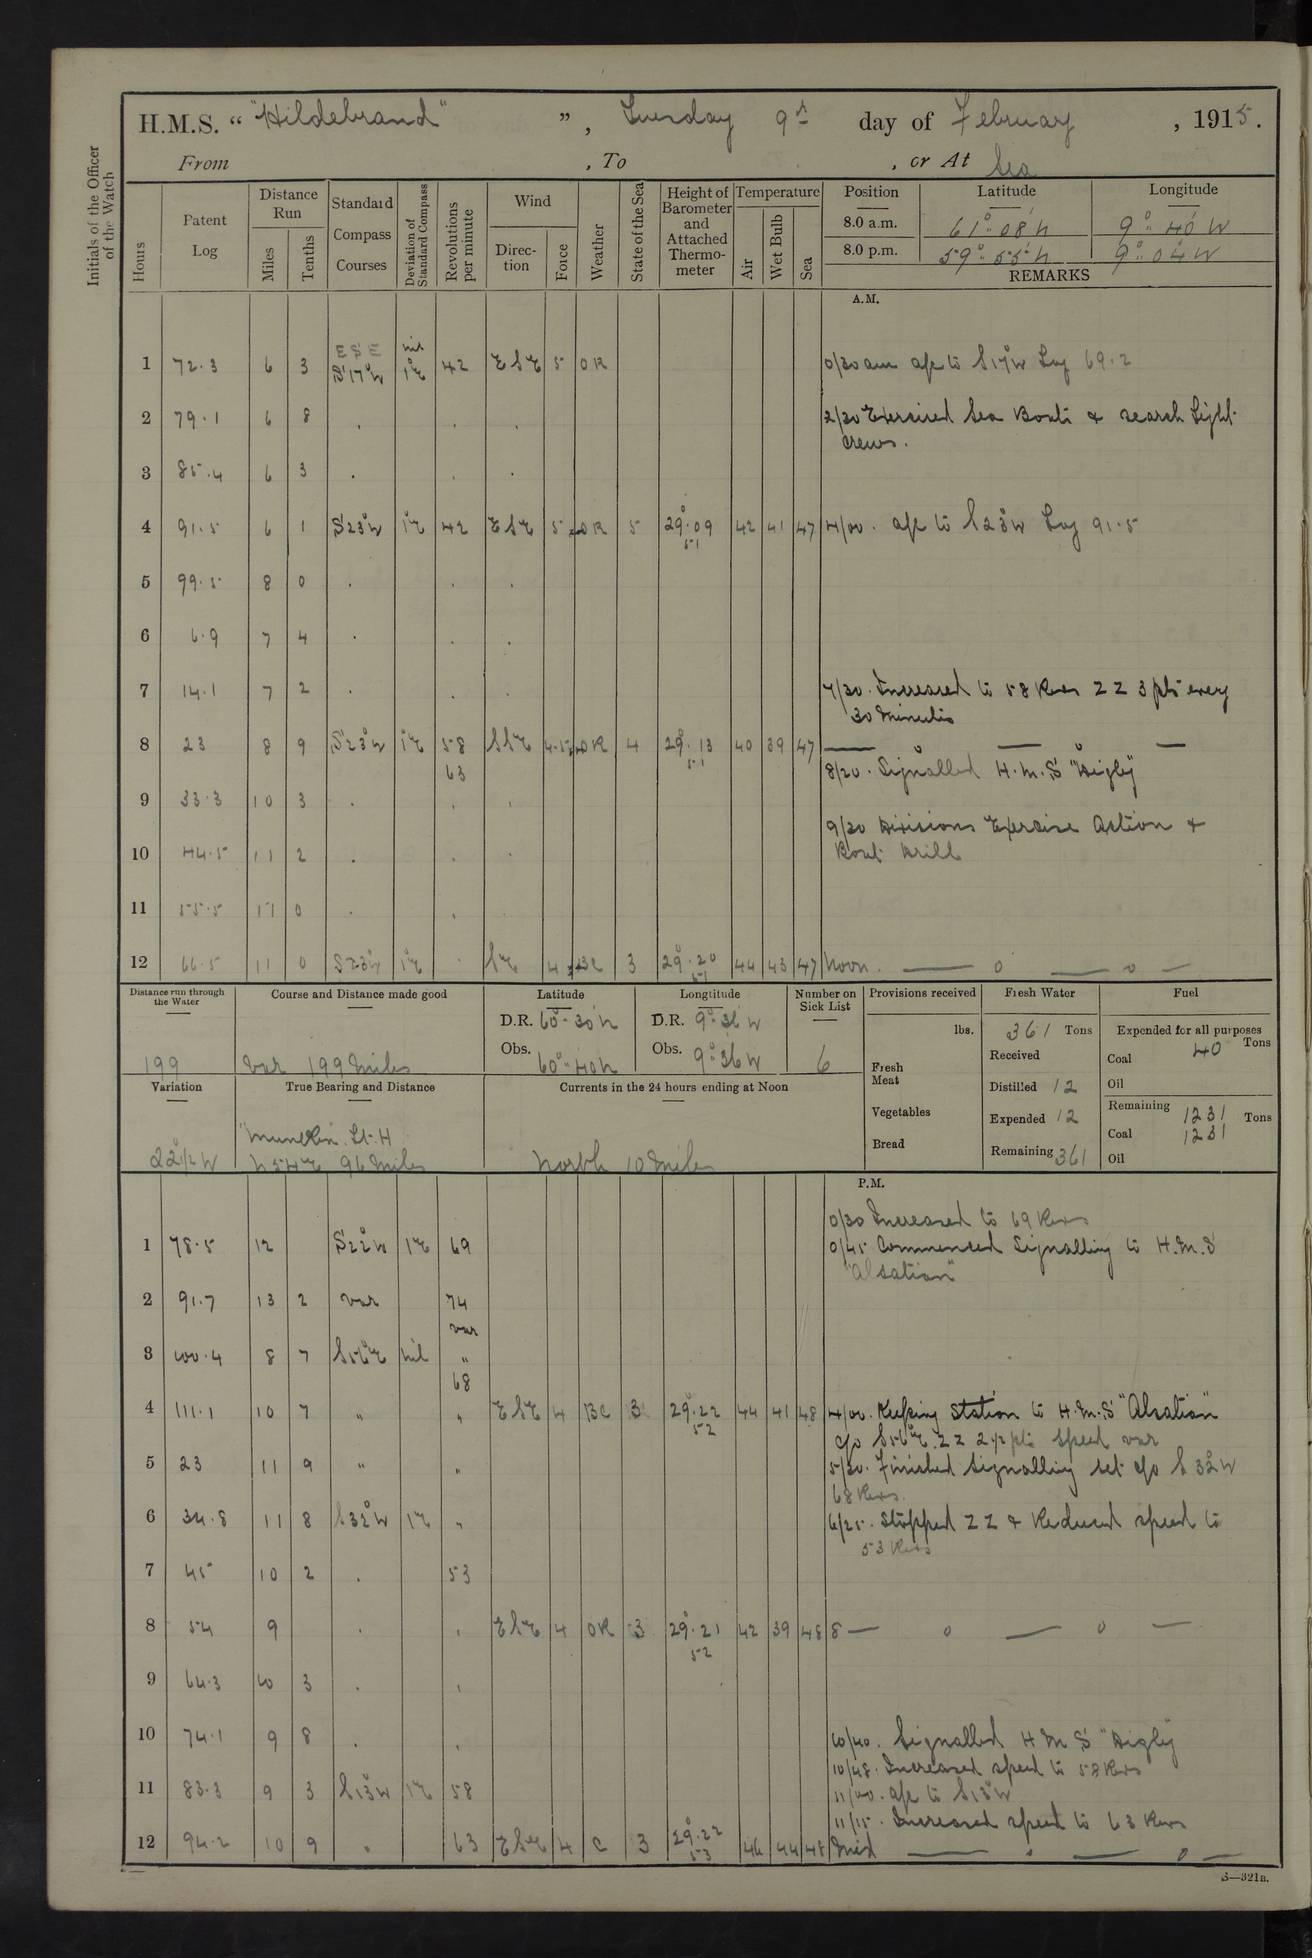 H.M.S. “ "Hildebrand" ” , Tuesday 9th day of February , 1915.
From , To , or At Sea
Initials of the Officer of the Watch
Hours
Patent Log
Distance Run
Miles
Tenths
Standard Compass Courses
Deviation of Standard Compass
Revolutions per minute
Wind
Direction
Force
Weather
State of the Sea
Height of Barometer and Attached Thermometer
Temperature
Air
Wet Bulb
Sea
Position Latitude Longitude
8.0 a.m. 61°.08' N 9°.40' W
8.0 p.m. 59°.55' N 9°.04' W
REMARKS
A.M.
ESE nil
1 72.3 6 3 S17°W 1°E 42 ESE 5 OR 0/30 am a/c to S17°W Log 69.2
2 79.1 6 8 . . . 2/30 Exercised Sea Boats & search Light
crews.
3 85.4 6 3 . . .
4 91.5 6 1 S23°W 1°E 42 ESE 5 OR 5 29.09 42 41 47 4/00. a/c to S23°W Log 91.5
51
5 99.5 8 0 . . .
6 6.9 7 4 . . .
7 14.1 7 2 . . . 7/30. Increased to 58 Revs ZZ 3 pts every
30 Minutes
8 23 8 9 S23°W 1°E 58 SSE 4.5 OR 4 29.13 40 39 47
63 51
8/20. Signalled H.M.S "Digby"
9 33.3 10 3 . . .
9/30 Divisions Exercise Action &
10 44.5 11 2 . . . Boat Drill
11 55.5 11 0 . .
12 66.5 11 0 S23°W 1°E . SE 4 BC 3 29.20 44 43 47 Noon.
51
Distance run through the Water
Course and Distance made good
Latitude
Longtitude
Number on Sick List
Provisions received
Fresh Water
Fuel
D.R. 60°.30' N D.R. 9°.36' W
Obs. 60°.40' N Obs. 9°.36' W
199 var 199 Miles 6
lbs.
Fresh Meat
Vegetables
Bread
361 Tons
Received
Distilled 12
Expended 12
Remaining 361
Expended for all purposes
Coal 40 Tons
Oil
Remaining 1231 Tons
Coal 1231
Oil
Variation
True Bearing and Distance
Currents in the 24 hours ending at Noon
22½ W
Lt. H
N54°E 96 Miles
North 10 Miles
P.M.
0/30 Increased to 69 Revs
1 78.5 12 S22°W 1°E 69 0/45 Commenced Signalling to H.M.S
"Alsatian"
2 91.7 13 2 var 74
var
3 100.4 8 7 S56°E nil "
68
4 111.1 10 7 " " ESE 4 BC 3 29.22 44 41 48 4/00. Keeping Station to H.M.S "Alsatian"
52
c/o S56°E. ZZ 2½ pts speed var
5 23 11 9 " " 5/30. Finished Signalling set c/o S 32°W
68 Revs.
6 34.8 11 8 S32°W 1°E " 6/25. Stopped ZZ & Reduced speed to
53 Revs
7 45 10 2 . 53
8 54 9 . . ESE 4 OR 3 29.21 42 39 48 8
52
9 64.3 10 3 . .
10 74.1 9 8 . . 10/40. Signalled H M S "Digby"
10/48. Increased speed to 58 Revs
11 83.3 9 3 S13°W 1°E 58 11/00. a/c to S13°W
11/15. Increased speed to 63 Revs
12 94.2 10 9 " 63 ESE 4 C 3 29.22 46 44 48 Mid
53
S—321B.